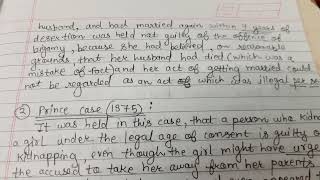 husband, and had married again within 7 years of
desertion was held not guilty of the offence of
bigamy, because she had believed, on reasonable
grounds, that her husband had died (which was a
mistake of fact) and her act of getting married could
not be regarded as an act of which was illegal per se
② Prince case (1875) :
It was held in this case, that a person who kidnap
a girl under the legal age of consent is guilty of
kidnapping, even though the girl might have urge
the accused to take her away from her parents
appeared to